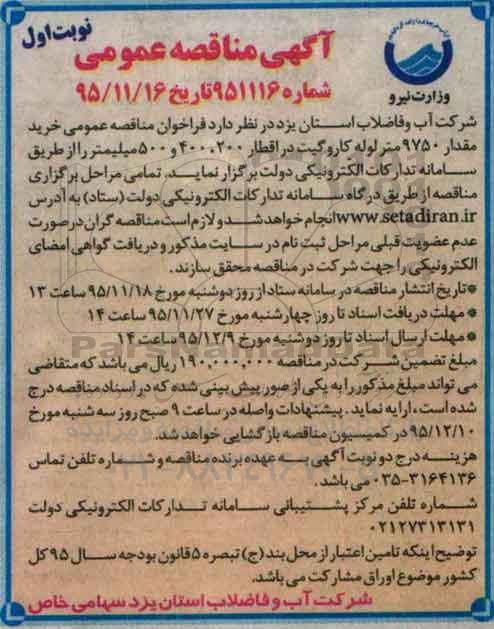 نوبت اول
آگهی مناقصه عمومی
شماره ۹۵۱۱۱۶ تاریخ ۹۵/۱۱/۱۶
وزارت نیرو
شرکت آب وفاضلاب استان یزد در نظر دارد فراخوان مناقصه عمومی خرید
مقدار ۹۷۵۰ متر لوله کاروگیت در اقطار ۴۰۰،۲۰۰ و ۵۰۰ میلیمتر را از طریق
سامانه تدارکات الکترونیکی دولت برگزار نماید. تمامی مراحل برگزاری
مناقصه از طریق درگاه سامانه تدارکات الکترونیکی دولت (ستاد) به آدرس
www.setadiran.ir انجام خواهد شد و لازم است مناقصه گران در صورت
عدم عضویت قبلی مراحل ثبت نام در سایت مذکور و دریافت گواهی امضای
الکترونیکی را جهت شرکت در مناقصه محقق سازند.
*تاریخ انتشار مناقصه در سامانه ستاد از روز دوشنبه مورخ ۹۵/۱۱/۱۸ ساعت ۱۳
* مهلت دریافت اسناد تا روز چهارشنبه مورخ ۹۵/۱۱/۲۷ ساعت ۱۴
* مهلت ارسال اسناد تا روز دوشنبه مورخ ۹۵/۱۲/۹ ساعت ۱۴
مبلغ تضمین شرکت در مناقصه ۱۹۰,۰۰۰,۰۰۰ ریال می باشد که متقاضی
می تواند مبلغ مذکور را به یکی از صور پیش بینی شده که در اسناد مناقصه درج
شده است، ارایه نماید. پیشنهادات واصله در ساعت ۹ صبح روز سه شنبه مورخ
۹۵/۱۲/۱۰ در کمیسیون مناقصه بازگشایی خواهد شد.
هزینه درج دو نوبت آگهی به عهده برنده مناقصه و شماره تلفن تماس
۰۳۵-۳۱۶۴۱۳۶ می باشد.
شماره تلفن مرکز پشتیبانی سامانه تدارکات الکترونیکی دولت
۰۲۱۲۷۳۱۳۱۳۱
توضیح اینکه تامین اعتبار از محل بند (ج) تبصره ۵ قانون بودجه سال ۹۵ کل
کشور موضوع اوراق مشارکت می باشد.
شرکت آب و فاضلاب استان یزد سهامی خاص